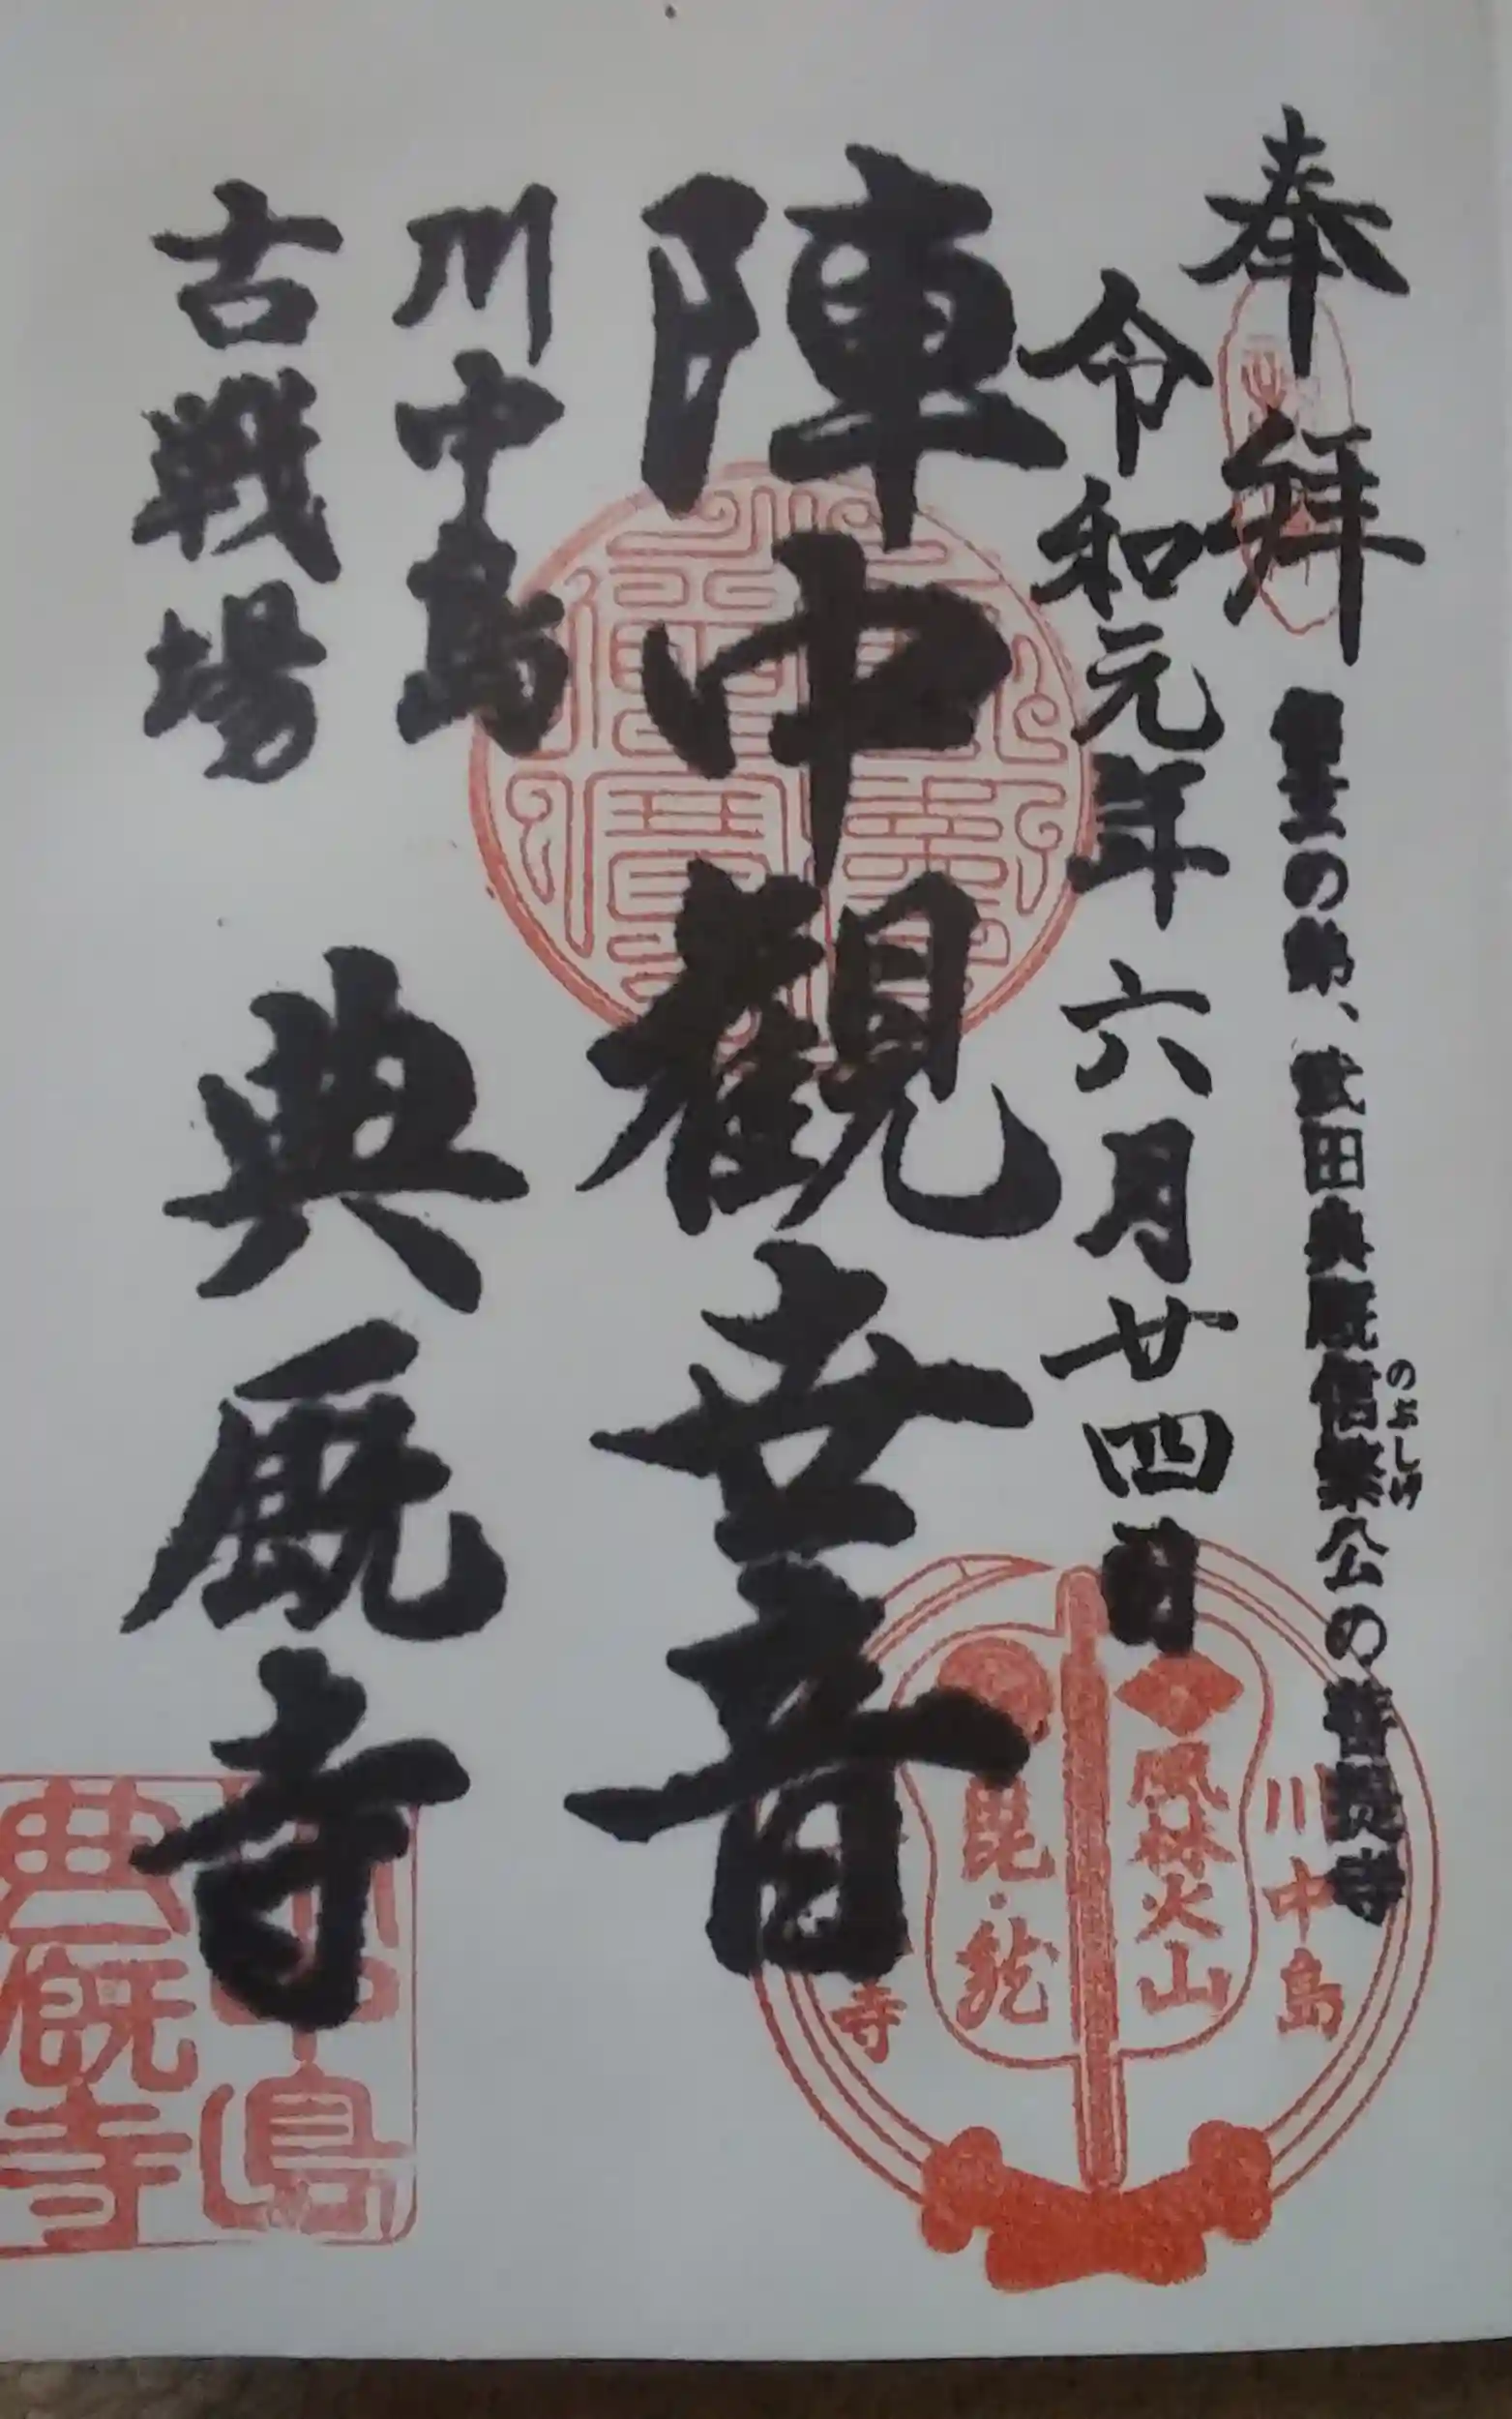 奉拝
信玄の弟、武田典厩信繁公の菩提寺
のぶしげ
令和元年六月廿四日
陣中観世音
川中島
古戦場
典厩寺
川中島
風林火山
毘・龍
寺
島
典厩寺